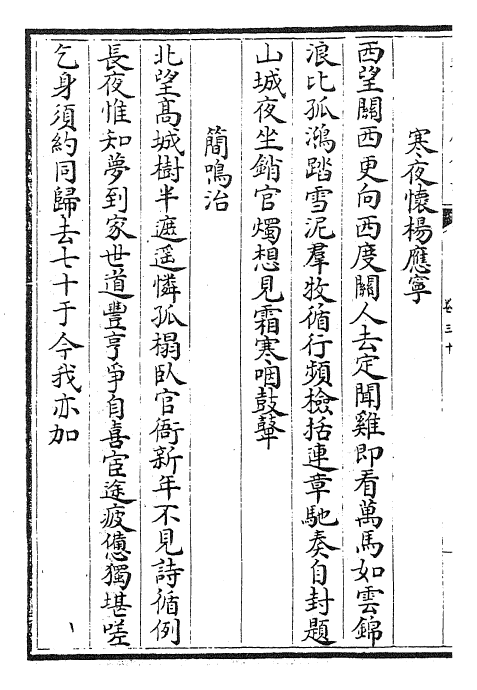 寒夜懷楊應寧
西望關西更向西度關人去定聞雞即看萬馬如雲錦
浪比孤鴻踏雪泥羣牧循行頻檢括連章馳奏自封題
山城夜坐銷官燭想見霜寒咽鼓鼙
簡鳴治
北望高城樹半遮遥憐孤榻臥官衙新年不見詩循例
長夜惟知夢到家世道豐亨爭自喜宦途疲憊獨堪嗟
乞身須約同歸去七十于今我亦加
卷三十